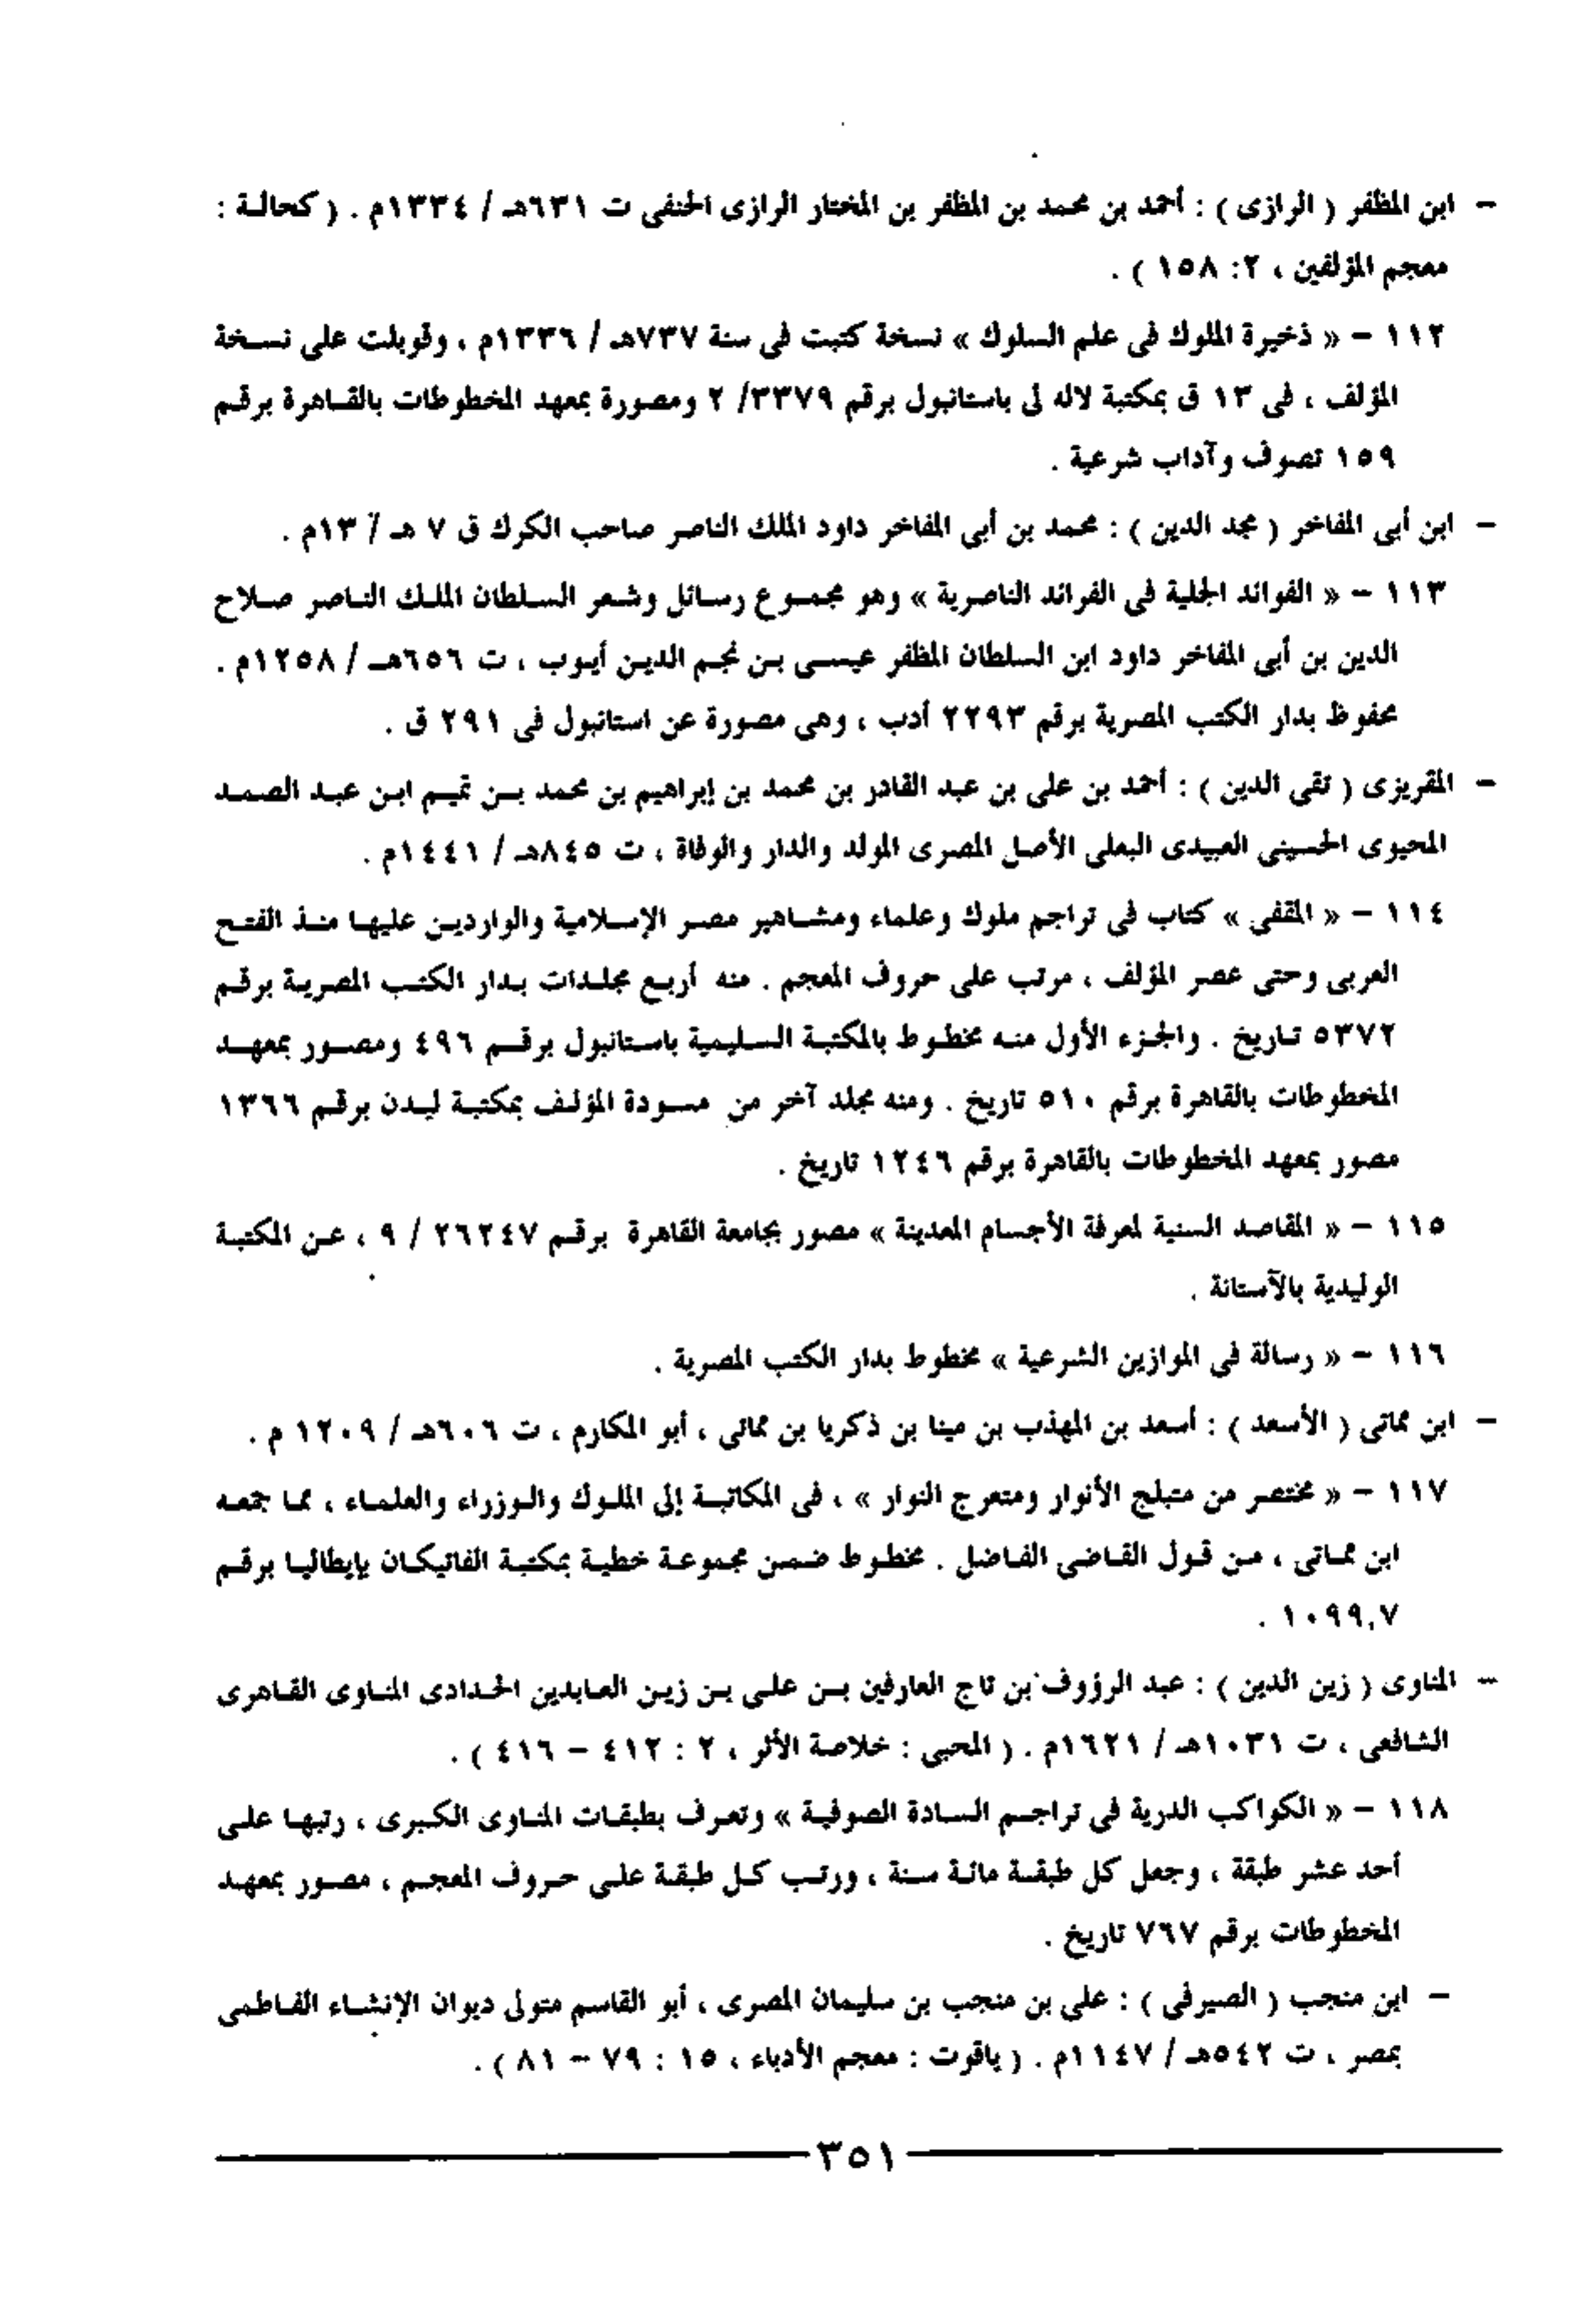 – ابن المظفر ( الرازى ) : أحمد بن محمد بن المظفر بن المختار الرازى الحنفى ت ٦٣١هـ / ١٣٣٤م . ( كحالة :
معجم المؤلفين ، ٢: ١٥٨ ) .
١١٢ – « ذخيرة الملوك فى علم السلوك » نسخة كتبت فى سنة ٧٣٧هـ / ١٣٣٦م ، وقوبلت على نسخة
المؤلف ، فى ١٣ ق بمكتبة لاله لى باستانبول برقم ٣٣٧٩/ ٢ ومصورة بمعهد المخطوطات بالقاهرة برقم
١٥٩ تصوف وآداب شرعية .
– ابن أبى المفاخر ( مجد الدين ) : محمد بن أبى المفاخر داود الملك الناصر صاحب الكرك ق ٧ هـ / ١٣م .
١١٣ – « الفوائد الجلية فى الفرائد الناصرية » وهو مجموع رسائل وشعر السلطان الملك الناصر صلاح
الدين بن أبى المفاخر داود ابن السلطان المظفر عيسى بن نجم الدين أيوب ، ت ٦٥٦هـ / ١٢٥٨م .
محفوظ بدار الكتب المصرية برقم ٢٢٩٣ أدب ، وهى مصورة عن استانبول فى ٢٩١ ق .
– المقريزى ( تقى الدين ) : أحمد بن على بن عبد القادر بن محمد بن إبراهيم بن محمد بن تميم ابن عبد الصمد
المحيوى الحسينى العبيدى البعلى الأصل المصرى المولد والدار والوفاة ، ت ٨٤٥هـ / ١٤٤١م .
١١٤ – « المقفى » كتاب فى تراجم ملوك وعلماء ومشاهير مصر الإسلامية والواردين عليها منذ الفتح
العربى وحتى عصر المؤلف ، مرتب على حروف المعجم . منه أربع مجلدات بدار الكتب المصرية برقم
٥٣٧٢ تاريخ . والجزء الأول منه مخطوط بالمكتبة السليمية باستانبول برقم ٤٩٦ ومصور بمعهد
المخطوطات بالقاهرة برقم ٥١٠ تاريخ . ومنه مجلد آخر من مسودة المؤلف بمكتبة ليدن برقم ١٣٦٦
مصور بمعهد المخطوطات بالقاهرة برقم ١٢٤٦ تاريخ .
١١٥ – « المقاصد السنية لمعرفة الأجسام المعدينة » مصور بجامعة القاهرة برقم ٢٦٢٤٧ / ٩ ، عن المكتبة
الوليدية بالآستانة .
١١٦ – « رسالة فى الموازين الشرعية » مخطوط بدار الكتب المصرية .
– ابن مماتى ( الأسعد ) : أسعد بن المهذب بن مينا بن ذكريا بن مماتى ، أبو المكارم ، ت ٦٠٦هـ / ١٢٠٩ م .
١١٧ – « مختصر من متبلج الأنوار ومتعرج النوار » ، فى المكاتبة إلى الملوك والوزراء والعلماء ، مما جمعه
ابن مماتى ، من قول القاضى الفاضل . مخطوط ضمن مجموعة خطية بمكتبة الفاتيكان بإيطاليا برقم
١٠٩٩,٧ .
– المناوى ( زين الدين ) : عبد الرؤوف بن تاج العارفين بن على بن زين العابدين الحدادى المناوى القاهرى
الشافعى ، ت ١٠٣١هـ / ١٦٢١م . ( المحبى : خلاصة الأثر ، ٢ : ٤١٢ – ٤١٦ ) .
١١٨ – « الكواكب الدرية فى تراجم السادة الصوفية » وتعرف بطبقات المناوى الكبرى ، رتبها على
أحد عشر طبقة ، وجعل كل طبقة مائة سنة ، ورتب كل طبقة على حروف المعجم ، مصور بمعهد
المخطوطات برقم ٧٦٧ تاريخ .
– ابن منجب ( الصيرفى ) : على بن منجب بن سليمان المصرى ، أبو القاسم متولى ديوان الإنشاء الفاطمى
بمصر ، ت ٥٤٢هـ / ١١٤٧م . ( ياقوت : معجم الأدباء ، ١٥ : ٧٩ – ٨١ ) .
٣٥١